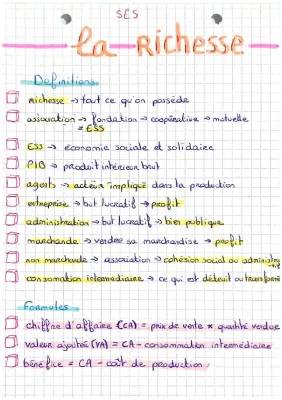 SES
La RICHESSE
Définitions
richesse → tout ce qu'on possède
association → fondation → coopérative → mutuelle
= ESS
ESS → économie sociale et solidaire
PIB → produit intérieur brut
agents → acteur impliqué dans la production
entreprise → but lucratif → profit
administration → but lucratif → bien publique
marchande → vendre sa marchandise → profit
non marchande → association → cohésion social ou administra
consomation intermediaire → ce qui est détruit ou transformé
Formules
chiffre d'affaire (CA) = prix de vente × quantité vendue
valeur ajoutée (VA) = CA - consommation intermédiaire
bénéfice = CA - coût de production